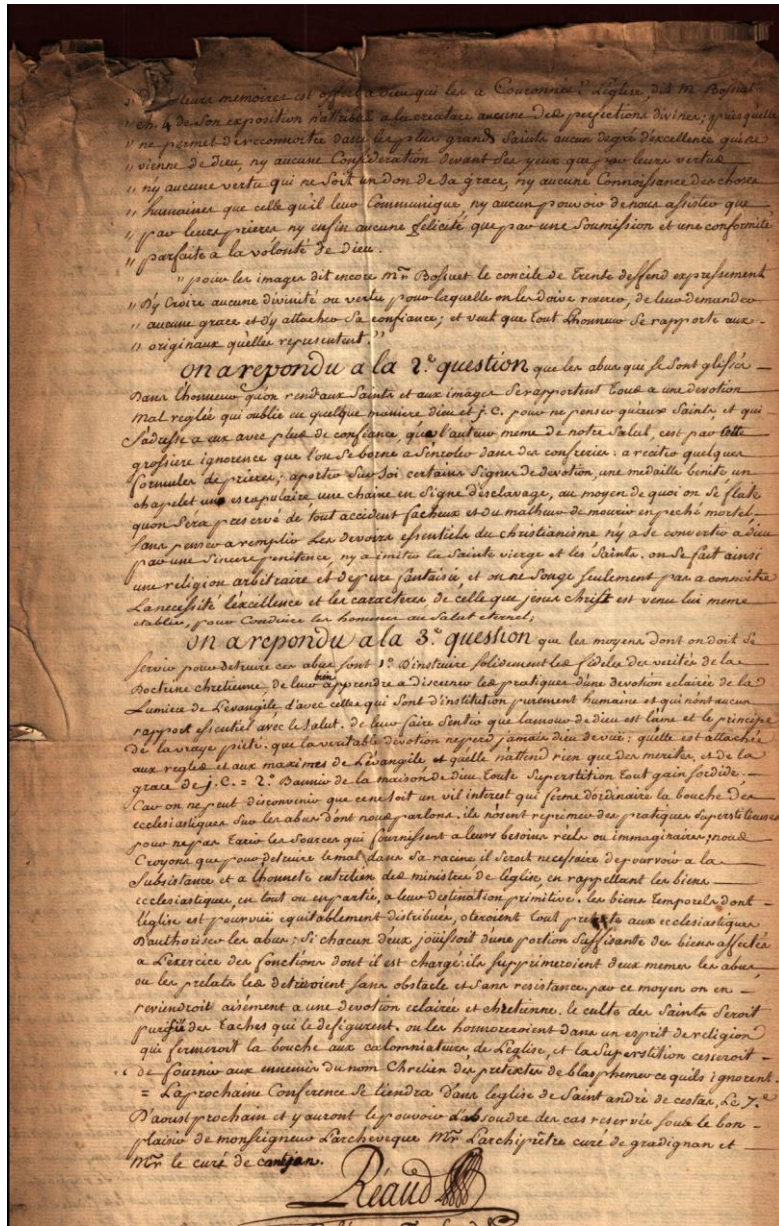 " leurs memoires est offert a Dieu qui les a Couronnés." L'eglise, dit M. Bossuet
" ch. 4 de Son exposition n'attribue a la creature aucune des perfections divines; puisqu'elle
" ne permet de reconnoitre dans les plus grands Saints aucun degré d'excellence qui ne
" vienne de dieu, ny aucune Consideration devant Ses yeux que par leurs vertus
" ny aucune vertu qui ne Soit un don de Sa grace, ny aucune Connoissance des choses
" humaines que celle qu'il leur Communique, ny aucun pouvoir de nous assister que
" par leurs prieres ny enfin aucune felicité que par une Soumission et une conformité
" parfaite a la volonté de Dieu.
" pour les images dit encore Mr. Bossuet le concile de Trente deffend expressement
" D'y Croire aucune divinité ou vertu pour laquelle on les doive reverer, de leur demander
" aucune grace et d'y attacher Sa confiance; et veut que tout l'honneur Se rapporte aux
" originaux quelles representent."
On a repondu a la 2.e question que les abus qui Se Sont glissés
Dans l'honneur qu'on rend aux Saints et aux images Se rapportent Tous a une devotion
mal reglée qui oublie en quelque maniere dieu et j. C. pour ne penser qu'aux Saints, et qui
S'adresse a eux avec plus de confiance, que l'auteur meme de notre Salut, c'est par cette
grossiere ignorence que l'on Se borne a S'enroler dans des confreries: a reciter quelques
formules de prieres; a porter Sur Soi certains Signes de devotion, une medaille benite un
chapelet un escapulaire une chaine en Signe d'esclavage, au moyen de quoi on Se flate
qu'on Sera preservé de tout accident facheux et du malheur de mourir en peché mortel
Sans penser a remplir Les devoirs essentiels du christianisme n'y a Se convertir a dieu
par une Sincere penitence, ny a imiter la Sainte vierge et les Saints. on Se fait ainsi
une religion arbitraire et de pure fantaisie, et on ne Songe Seulement pas a connoitre
La necessité l'excellence et les caracteres de celle que jesus Christ est venu lui meme
etablir, pour Conduire les hommes au Salut eternel;
On a repondu a la 3.e quession que les moyens dont on doit Se
Servir pour detruire ces abus Sont 1.o D'instruire Solidement les fideles des verités de la
Doctrine chretienne, de leur bien apprendre a discerner les pratiques d'une devotion eclairée de la
Lumiere de L'evangile d'avec celles qui Sont d'institution purement humaine et qui n'ont aucun
rapport essentiel avec le Salut. de leur faire Sentir que l'amour de dieu est l'ame et le principe
de la vraye pieté. que la veritable devotion ne perd jamais dieu de vue: quelle est attachée
aux regles et aux maximes de L'évangile et quelle n'attend rien que des merites, et de la
grace de j. C. = 2.o Bannir de la maison de Dieu Toute Superstition Tout gain Sordide.
Car on ne peut disconvenir que ce ne Soit un vil interest qui ferme d'ordinaire la bouche des
ecclesiastiques Sur les abus dont nous parlons. ils n'osent reprimer des pratiques Superstitieuses
pour ne pas Tarir les Sources qui fournissent a leurs besoins réels ou immaginaires; nous
Croyons que pour detruire le mal dans Sa racine il Seroit necessaire de pourvoir a la
Subsistance et a l'honnete entretien des ministres de l'eglise, en rappellant les biens
ecclesiastiques, en tout ou en partie, a leur destination primitive. les biens Temporels dont
l'église est pourvuë equitablement distribués, oteroient tout pretexte aux ecclesiastiques
D'authoriser les abus; Si chacun deux joüissoit d'une portion Suffisante des biens affectés
a L'exercice des fonctions dont il est chargé: ils Supprimeroient deux memes les abus
ou les prelats les detruiroient Sans obstacle et Sans resistance. par ce moyen on en
reviendroit aisément a une devotion eclairée et chretienne. le culte des Saints Seroit
purifié des Taches qui le defigurent. on les honnoreroient dans un esprit de religion
qui fermeroit la bouche aux calomniateurs de L'eglise, et la Superstition cesseroit
de fournir aux ennemis du nom Chretien des pretextes de blasphemer ce quils ignorent.
= La prochaine Conference Se tiendra dans l'eglise de Saint andré de cestas, Le 7.e
D'aoust prochain et y auront le pouvoir d'absoudre des cas reservés Sous le bon
plaisir de monseigneur L'archeveque Mr. L'archipretre curé de gradignan et
Mr. le curé de canejan.
Réaud